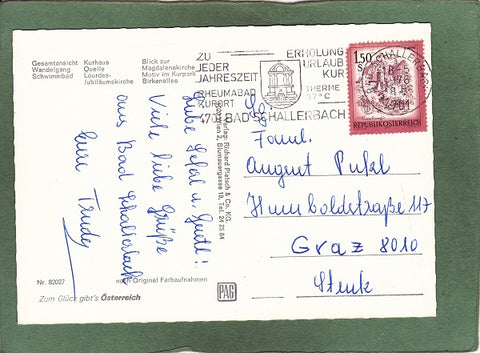 Gesamtansicht Kurhaus Blick zur
Wandelgang Quelle Magdalenakirche
Schwimmbad Lourdes- Motiv im Kurpark
Jubiläumskirche Birkenallee
ZU
JEDER
JAHRESZEIT
ERHOLUNG
URLAUB
KUR
RHEUMABAD
KURORT
THERME
37°C
4701 BAD SCHALLERBACH
1.50
REPUBLIK ÖSTERREICH
4701
Liebe u.
Viele liebe Grüße
aus Bad Schallerbach
Eure Trudy
Verlag: Richard Pietsch & Co. KG.
2, Blumauergasse 19, Tel. 24 25 84
Faml.
August
Humboldstraße 117
Graz 8010
Stmk
Nr. 82027
nach Original Farbaufnahmen
Zum Glück gibt's Österreich
PAG